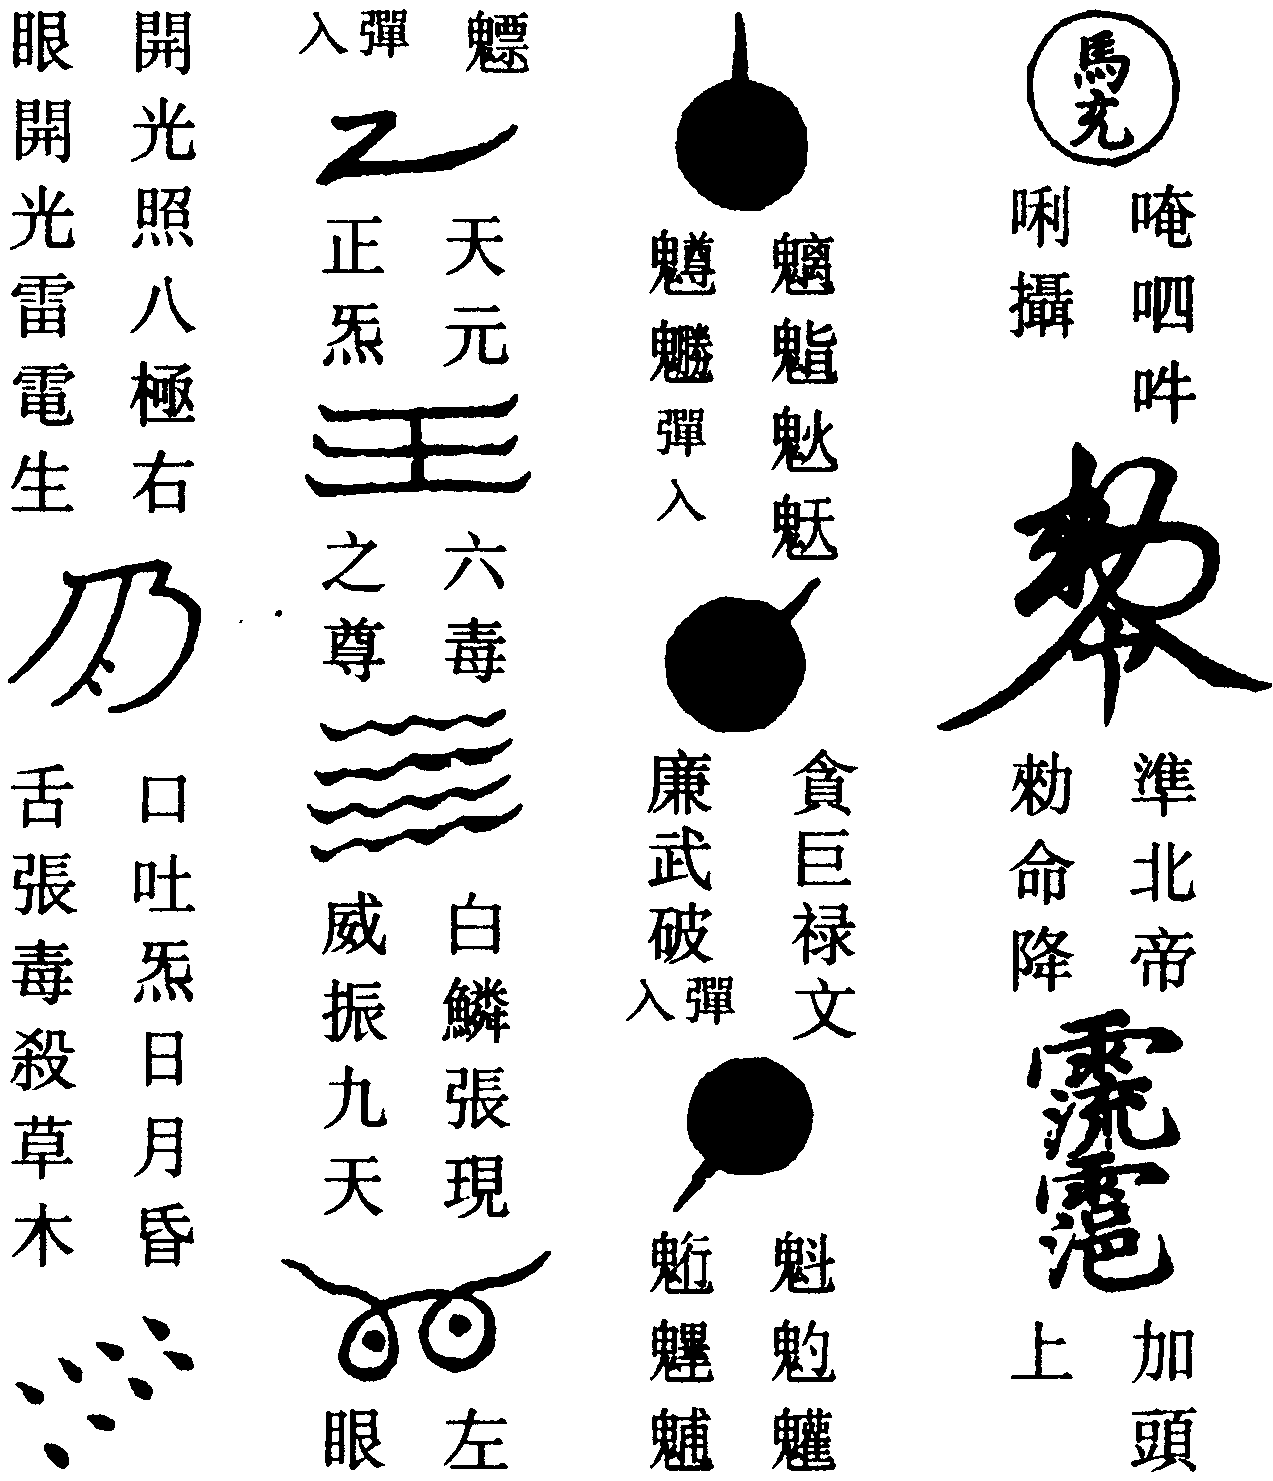 馬充
唵呬吽
唎攝
準北帝
勑命降
加頭
上
魑
彈入
貪巨禄文
廉武破
彈入
魁𩲃𩵄
𩲲魓𩳐
魒
彈入
天元
正炁
六毒
之尊
白鱗張現
威振九天
左
眼
開光照八極右
眼開光雷電生
口吐炁日月昏
舌張毒殺草木